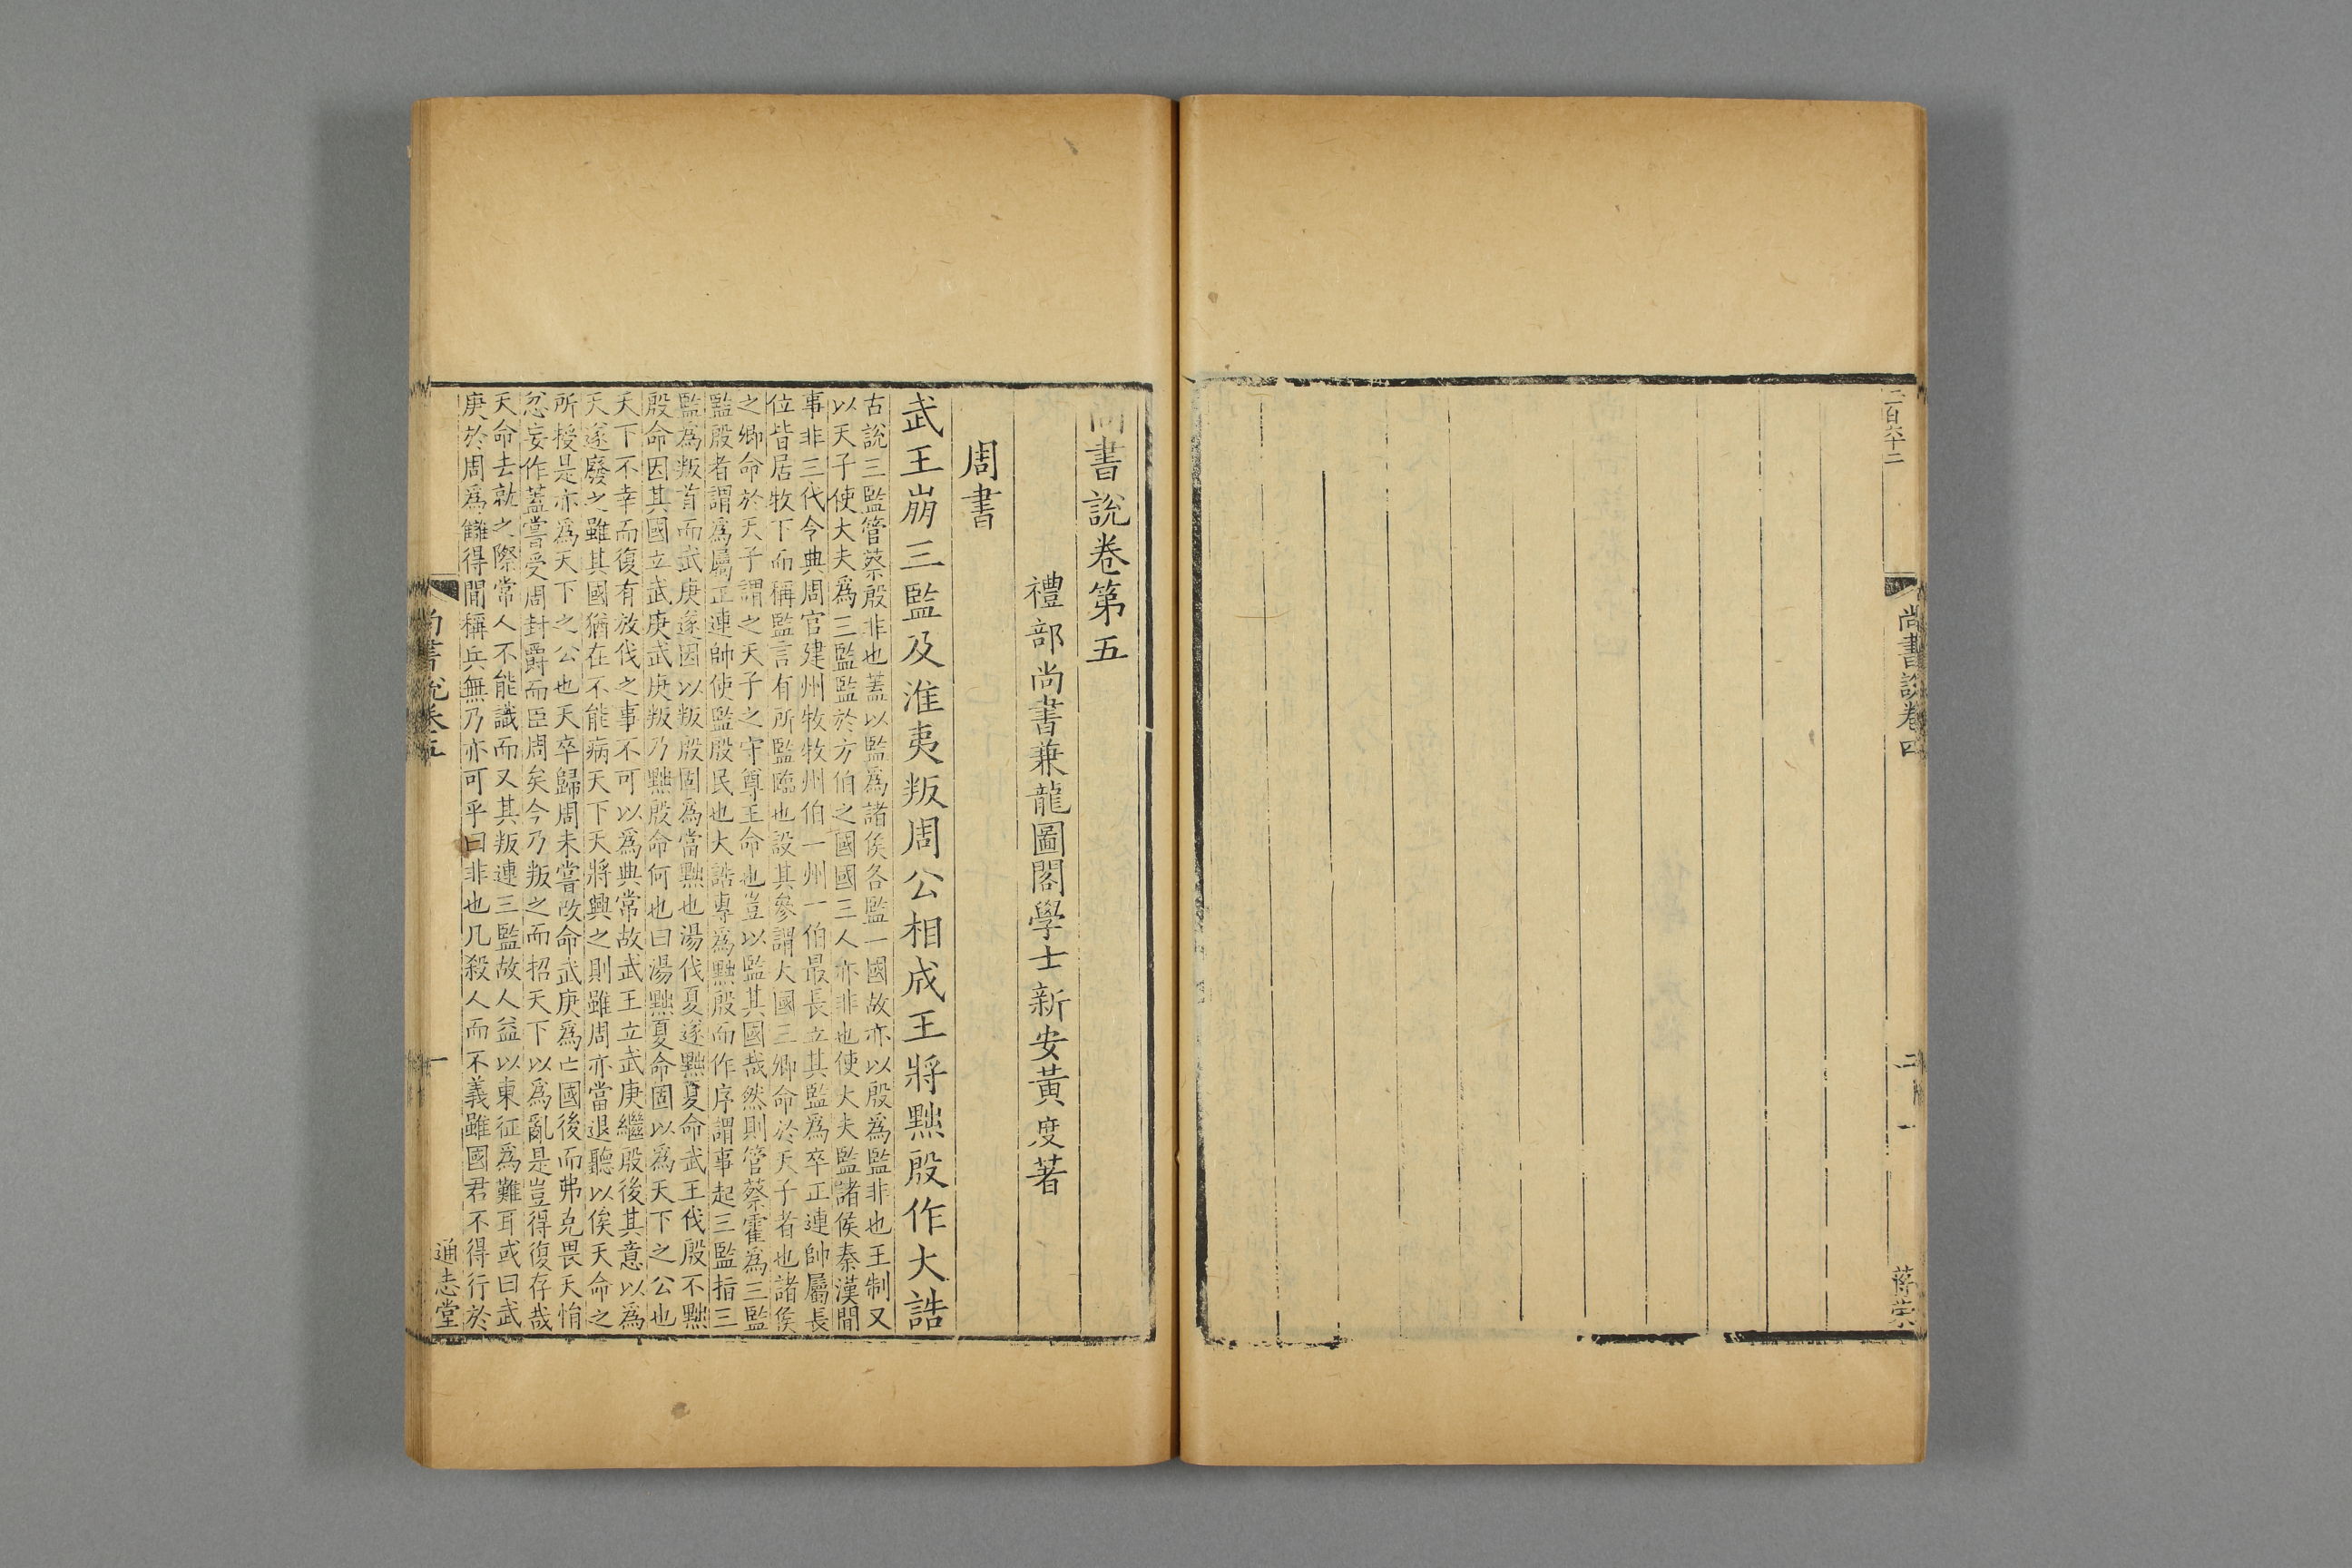 二百六十二
尚書說卷四
蔣榮
尚書說卷第五
禮部尚書兼龍圖閣學士新安黃度著
周書
武王崩三監及淮夷叛周公相成王將黜殷作大誥
古說三監管蔡殷非也蓋以監為諸侯各監一國故亦以殷為監非也王制又
以天子使大夫為三監監於方伯之國國三人亦非也使大夫監諸侯秦漢間
事非三代令典周官建州牧牧州伯一州一伯最長立其監為卒正連帥屬長
位皆居牧下而稱監言有所監臨也設其參謂大國三卿命於天子者也諸侯
之卿命於天子謂之天子之守尊王命也豈以監其國哉然則管蔡霍為三監
監殷者謂為屬正連帥使監殷民也大誥專為黜殷而作序謂事起三監指三
監為叛首而武庚遂因以叛殷固為當黜也湯伐夏遂黜夏命武王伐殷不黜
殷命因其國立武庚武庚叛乃黜殷命何也曰湯黜夏命固以為天下之公也
天下不幸而復有放伐之事不可以為典常故武王立武庚繼殷後其意以為
天遂廢之雖其國猶在不能病天下天將興之則雖周亦當退聽以俟天命之
所授是亦為天下之公也天卒歸周未嘗改命武庚為亡國後而弗克畏天悁
忿妄作蓋嘗受周封爵而臣周矣今乃叛之而招天下以為亂是豈得復存哉
天命去就之際常人不能識而又其叛連三監故人益以東征為難耳或曰武
庚於周為讎得間稱兵無乃亦可乎曰非也凡殺人而不義雖國君不得行於
尚書說卷五
一
通志堂